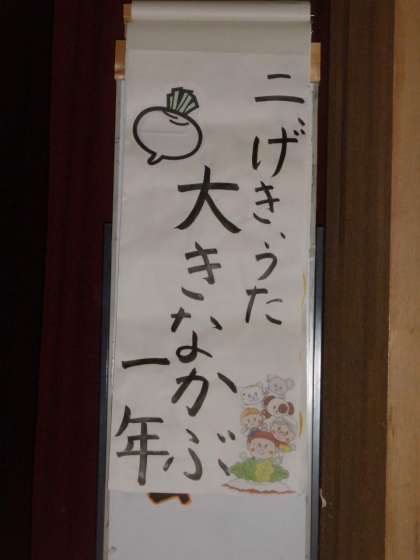 二、げき、うた
大きなかぶ
一年